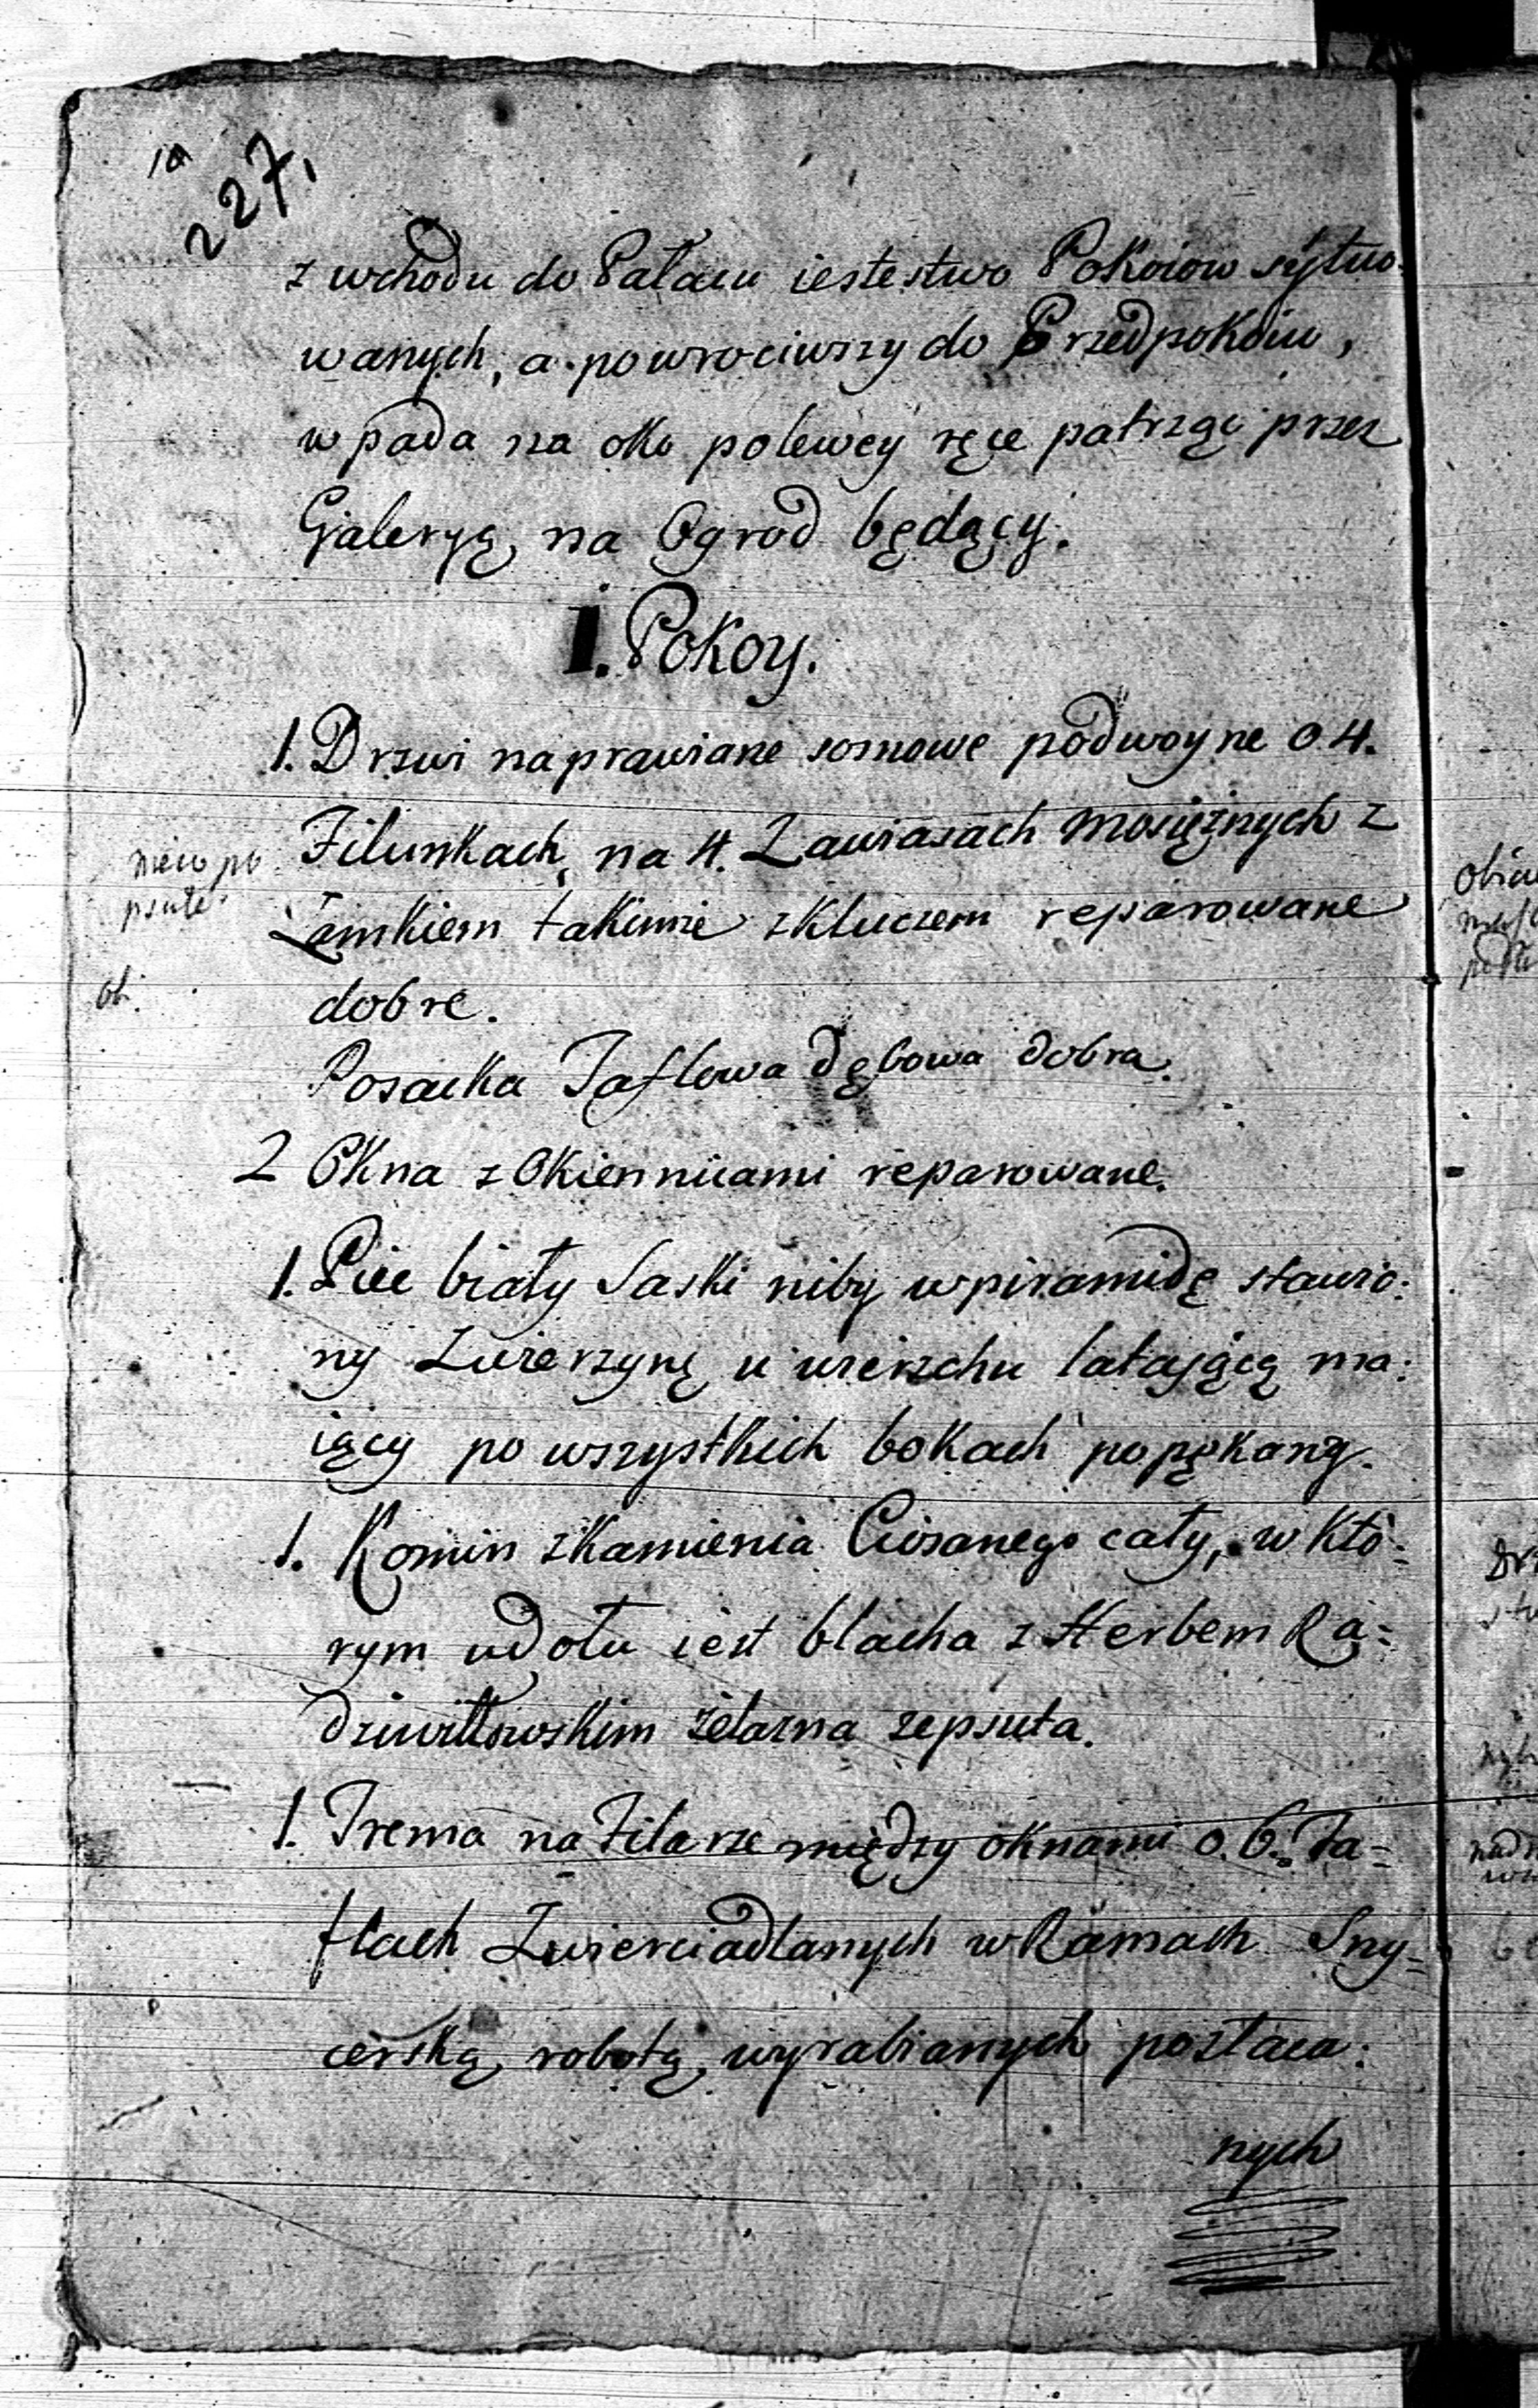 10
227,
z wchodu do Pałacu iestestwo Pokoiow sytuo-
wanych, a powrociwszy do Przedpokoiu,
wpada na oko polewey ręce patrząc przez
Galeryą na Ogrod będący.
1. Pokoy.
1. Drzwi naprawiane sosnowe podwoyne o 4.
Filunkach, na 4. Zawiasach Mosiężnych z
Zamkiem takimże z Kluczem reparowane
dobre.
Posacka Taflowa dębowa dobra.
2 Okna z Okiennicami reparowane.
1. Piec biały Saski niby w piramidę stawio:
ny Zwierzynę u wierzchu latającą ma:
iący po wszystkich bokach popękany.
1. Komin z Kamienia Ciosanego cały, w Któ=
rym u dołu iest blacha z Herbem Ra=
dziwiłłowskim żelazna zepsuta.
1. Trema na Filarze między oknami o. 6. Ta=
flach Zwierciadlanych w Ramach Sny=
cerską robotą wyrabianych pozłaca:
nych
psute
ob.